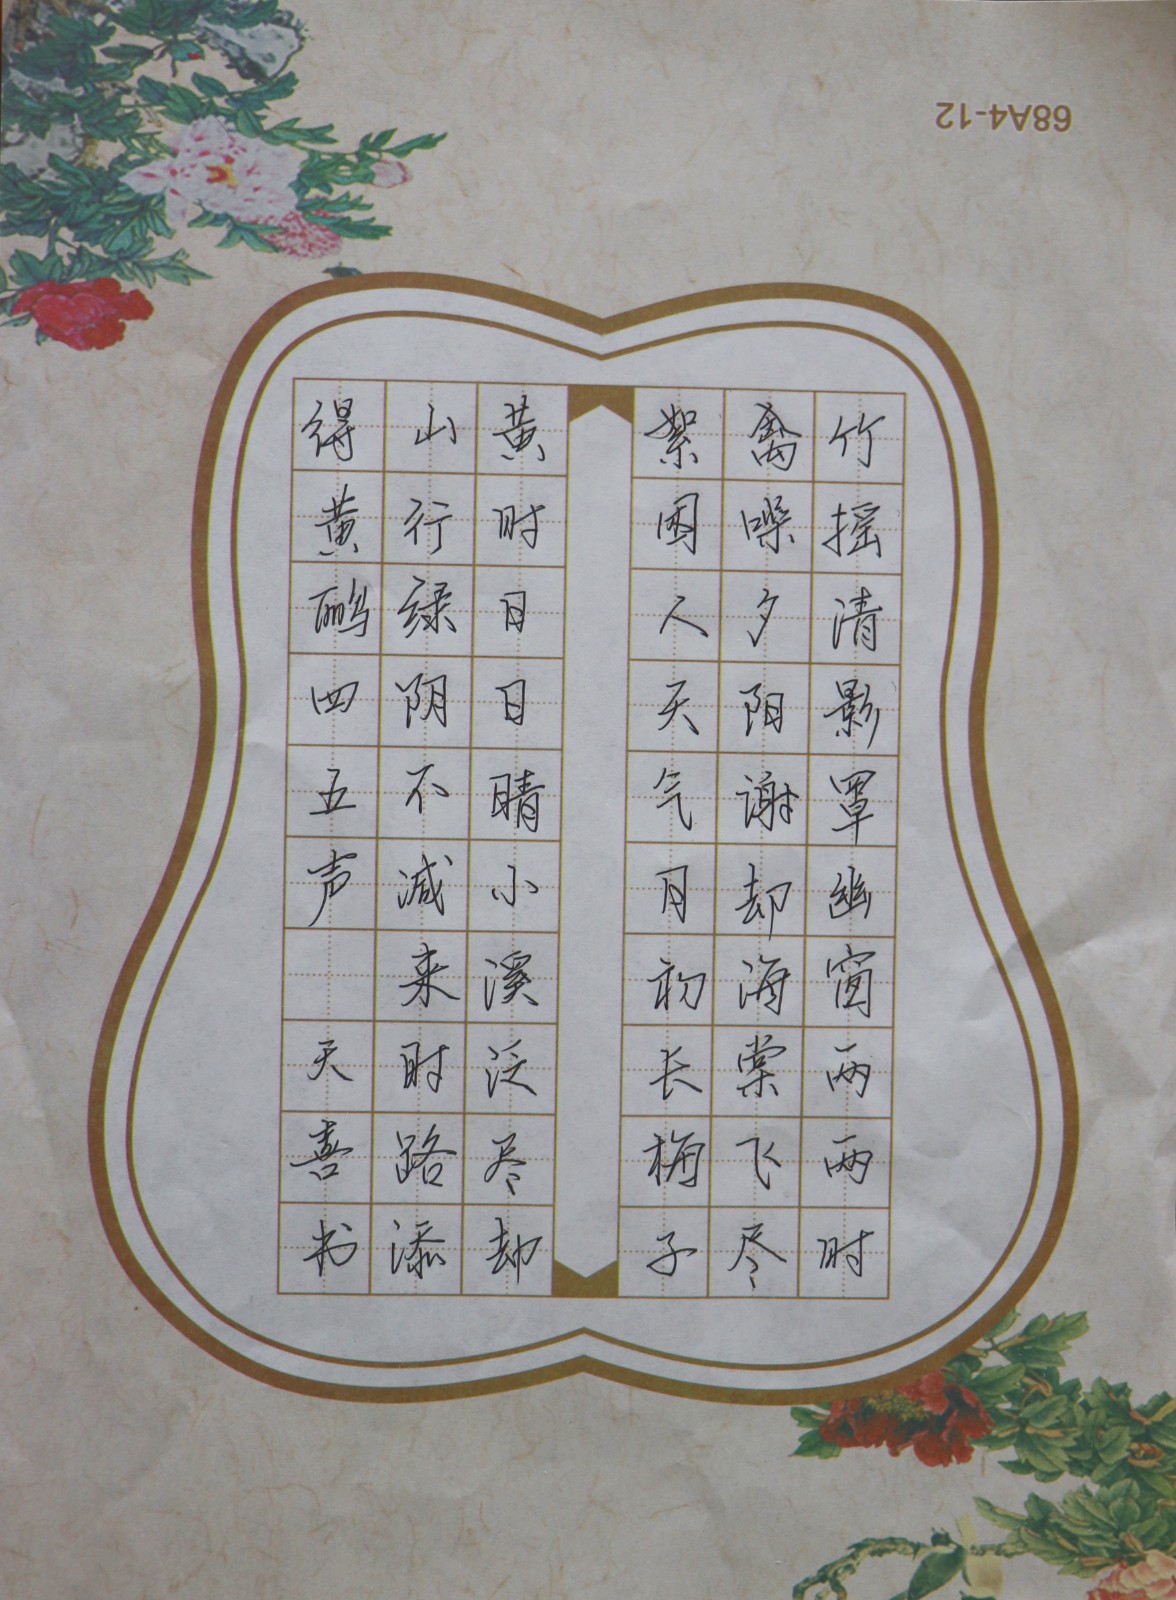 竹摇清影罩幽窗两两时
禽噪夕阳谢却海棠飞尽
絮困人天气日初长梅子
黄时日日晴小溪泛尽却
山行绿阴不减来时路添
得黄鹂四五声 天喜书
68A4-12